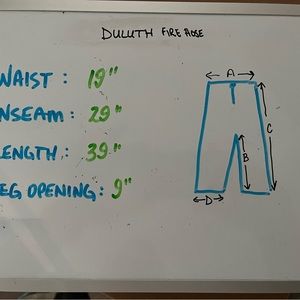 DULUTH FIRE HOSE
WAIST : 19"
NSEAM : 29"
LENGTH : 39"
EG OPENING : 9"
A
C
B
D